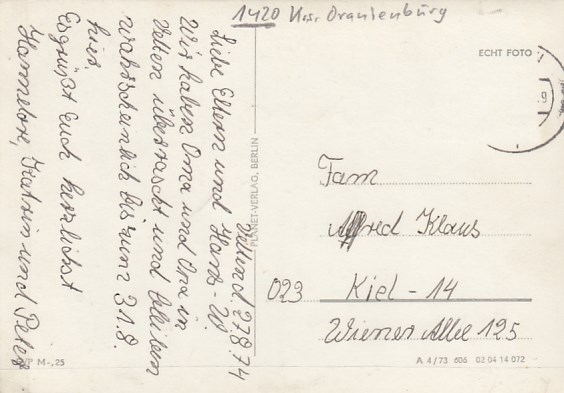 1420 Krs. Oranienburg
ECHT FOTO
PLANET-VERLAG, BERLIN
Velten d. 27.8.74
Liebe Eltern und Hans-W.
Wir haben Oma und Opa in
Velten überrascht und bleiben
wahrscheinlich bis zum 31.8.
hier.
Es grüßt Euch herzlichst
Hannelore, Katrin und Peter
Fam
Alfred Klaus
023 Kiel - 14
Wiener Allee 125
EVP M -,25
A 4/73 606 02 04 14 072